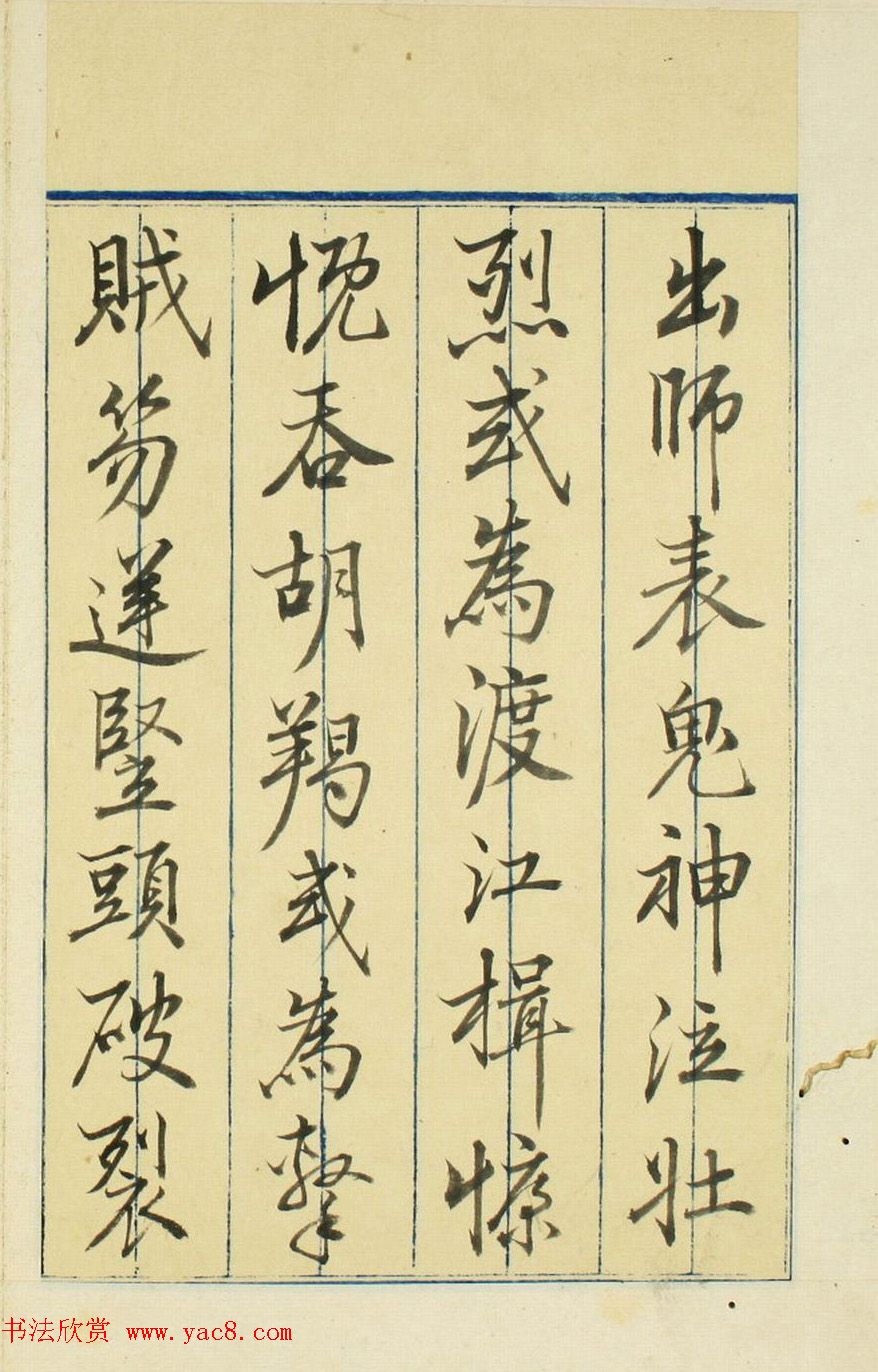 出師表鬼神泣壯
烈或為渡江楫慷
慨吞胡羯或為擊
賊笏逆豎頭破裂
书法欣赏 www.yac8.com